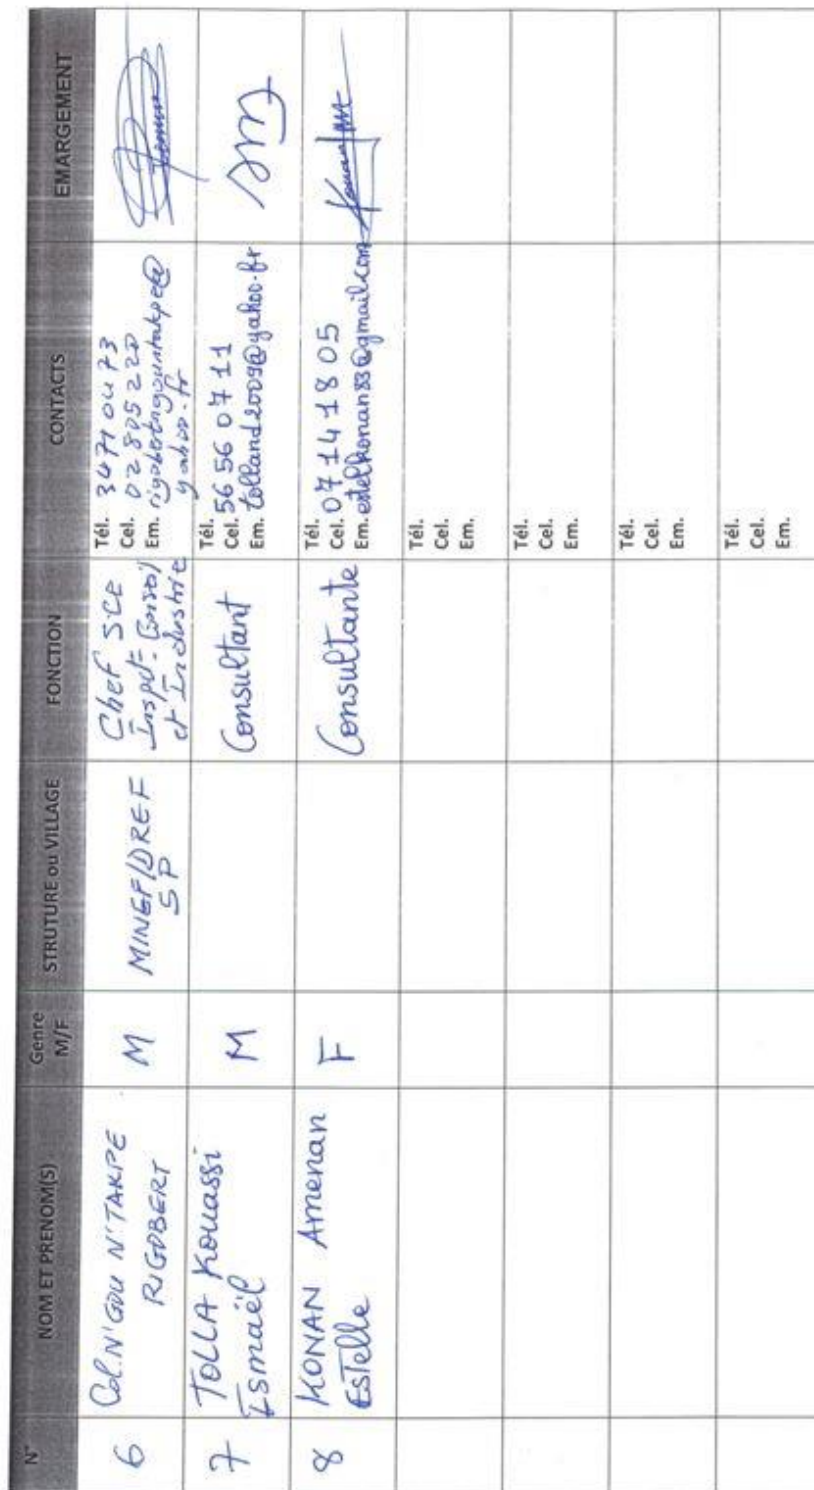 N°
NOM ET PRENOM(S)
Genre
M/F
STRUTURE ou VILLAGE
FONCTION
CONTACTS
EMARGEMENT
6
Col. N'GOU N'TAKPE
RIGOBERT
M
MINEF/DREF
SP
Chef SCE
et Industrie
Tél. 3471 04 73
Cel. 02 805 220
Em.
yahoo.fr
7
TOLLA Kouassi
Ismaël
M
Consultant
Tél.
Cel. 56 56 07 11
Em. tolland2009@yahoo.fr
8
KONAN Amenan
Estelle
F
Consultante
Tél.
Cel. 07 14 18 05
Em. estelkonan88@gmail.com
Tél.
Cel.
Em.
Tél.
Cel.
Em.
Tél.
Cel.
Em.
Tél.
Cel.
Em.